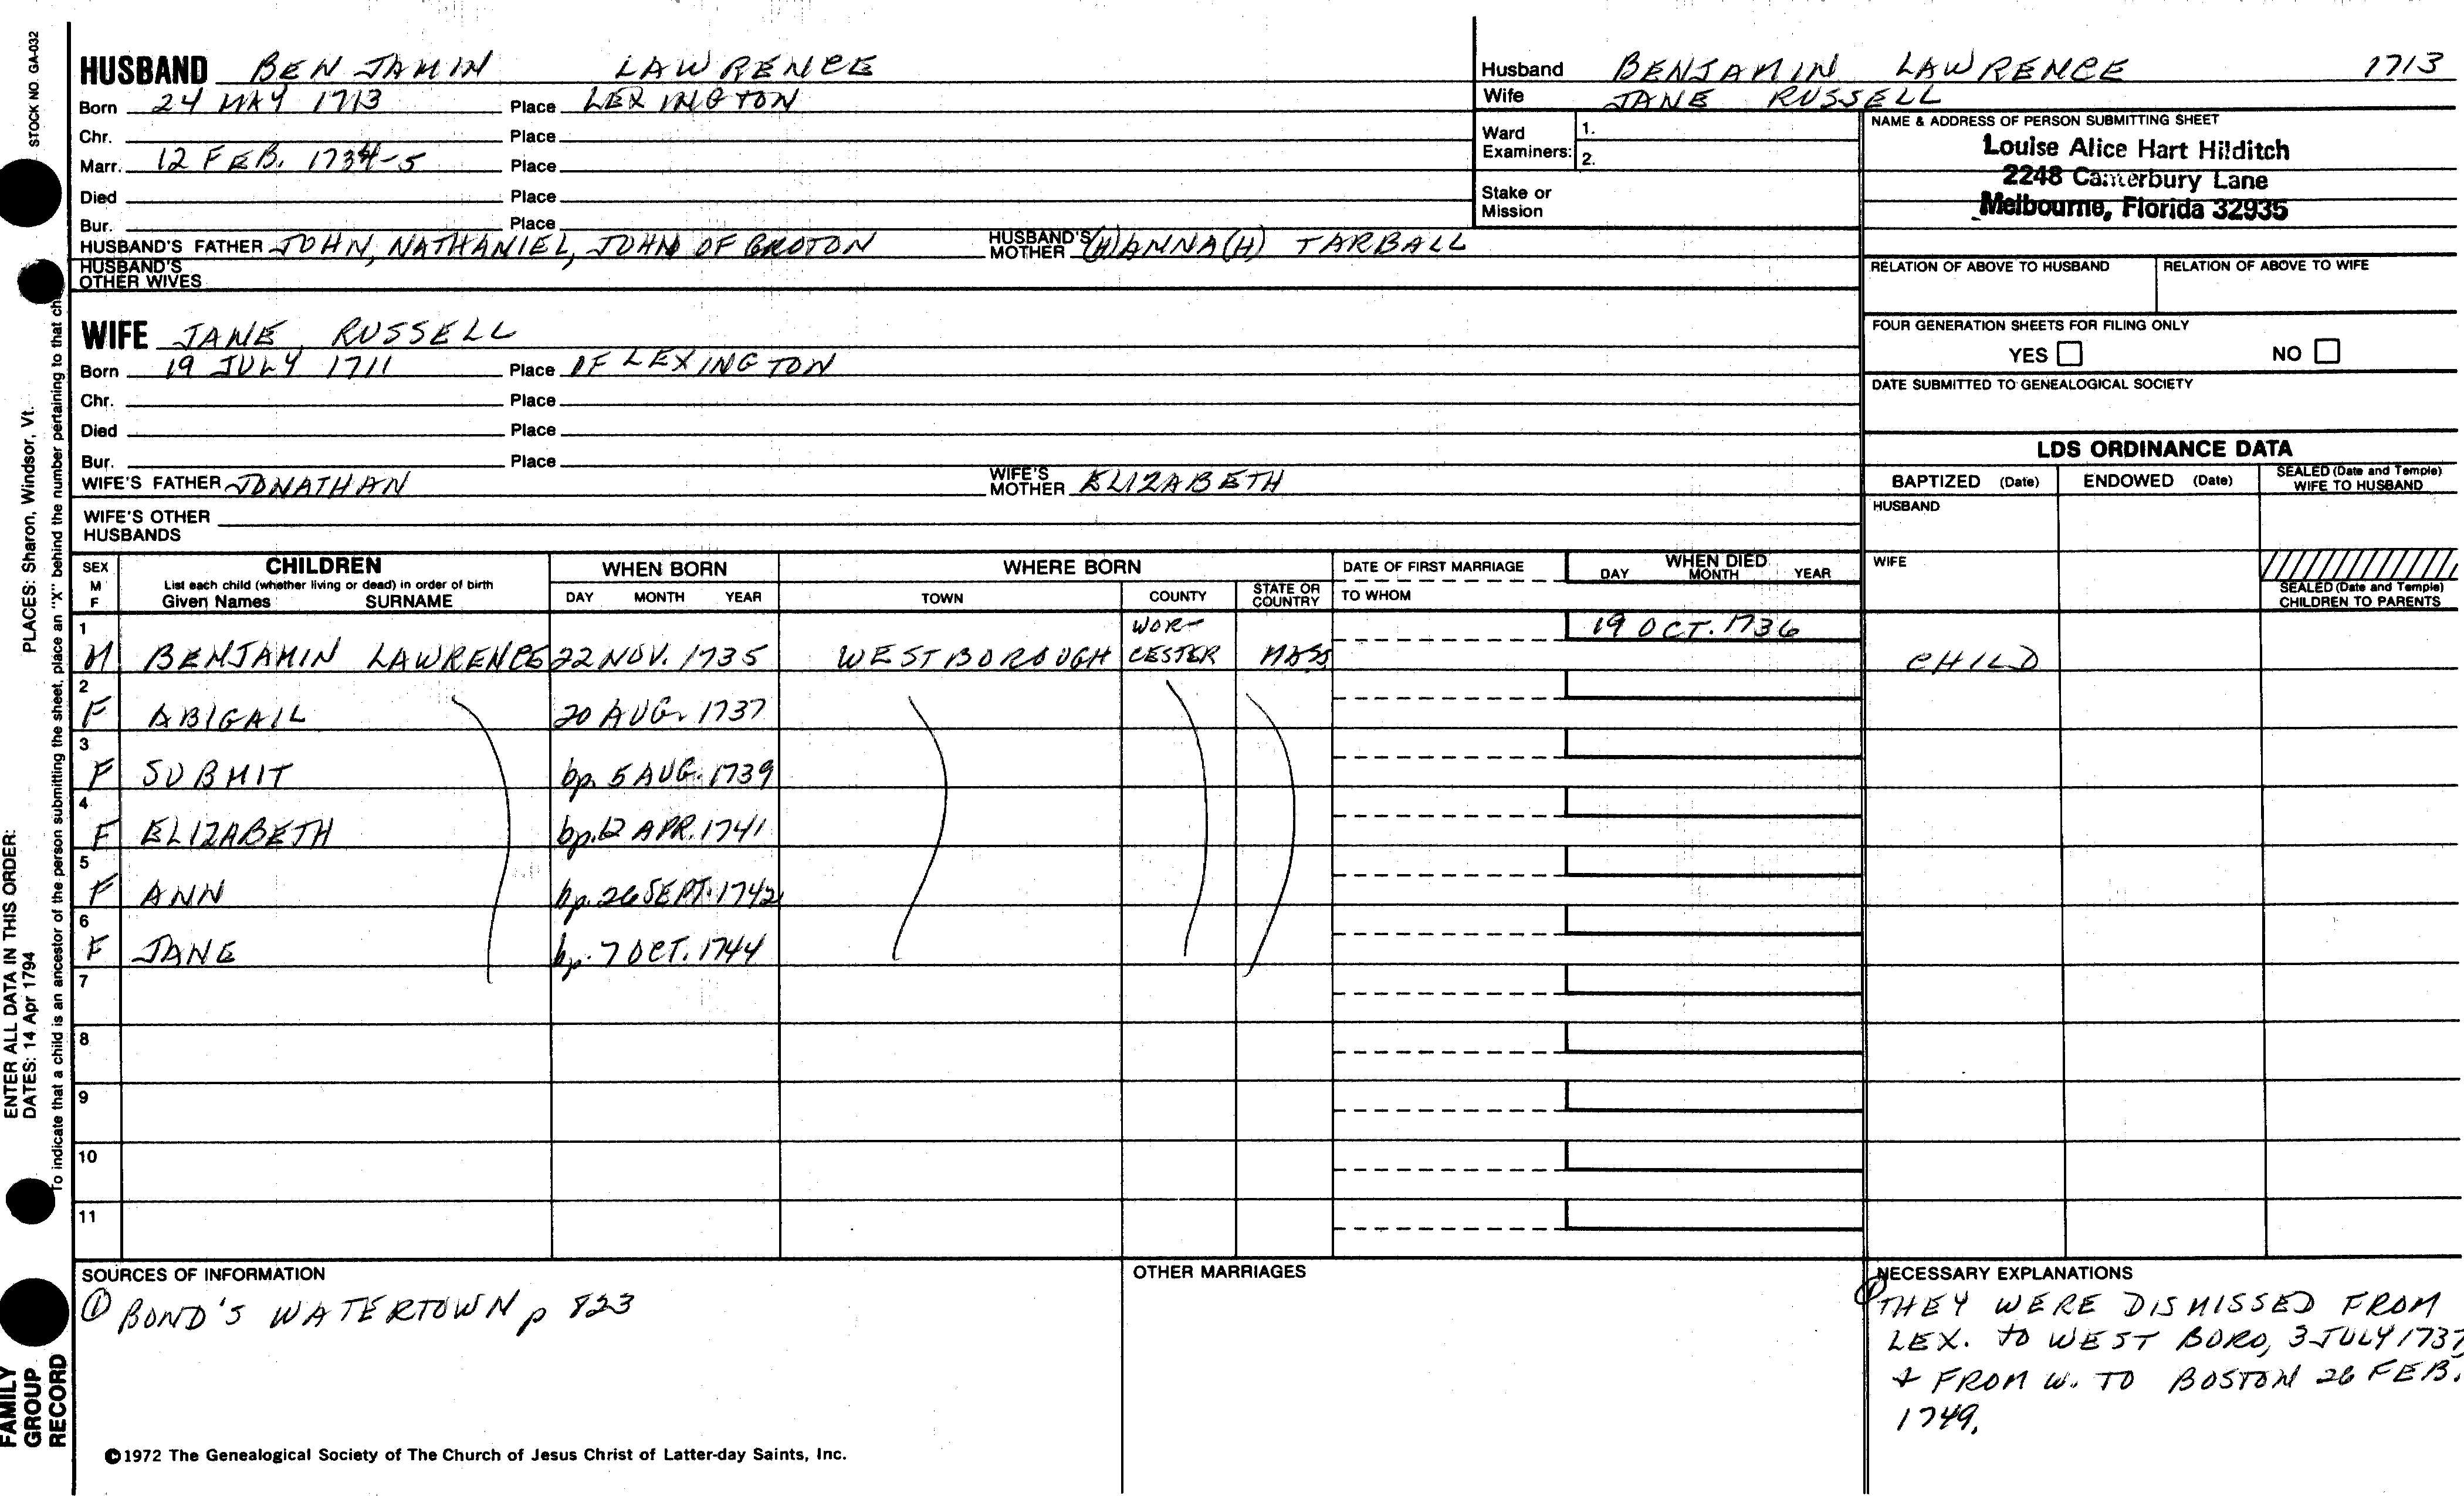 STOCK NO. GA-032
HUSBAND BENJAMIN LAWRENCE
Born 24 MAY 1713 Place LEXINGTON
Chr. Place
Marr. 12 FEB. 1734-5 Place
Died Place
Bur. Place
HUSBAND'S FATHER JOHN, NATHANIEL, JOHN OF GROTON HUSBAND'S MOTHER (H)ANNA(H) TARBALL
HUSBAND'S OTHER WIVES
WIFE JANE RUSSELL
Born 19 JULY 1711 Place OF LEXINGTON
Chr. Place
Died Place
Bur. Place
WIFE'S FATHER JONATHAN WIFE'S MOTHER ELIZABETH
WIFE'S OTHER HUSBANDS
Husband BENJAMIN LAWRENCE 1713
Wife JANE RUSSELL
Ward Examiners: 1.
2.
Stake or Mission
NAME & ADDRESS OF PERSON SUBMITTING SHEET
Louise Alice Hart Hilditch
2248 Canterbury Lane
Melbourne, Florida 32935
RELATION OF ABOVE TO HUSBAND RELATION OF ABOVE TO WIFE
FOUR GENERATION SHEETS FOR FILING ONLY
YES NO
DATE SUBMITTED TO GENEALOGICAL SOCIETY
LDS ORDINANCE DATA
BAPTIZED (Date) ENDOWED (Date) SEALED (Date and Temple) WIFE TO HUSBAND
HUSBAND
WIFE
SEALED (Date and Temple) CHILDREN TO PARENTS
SEX M F CHILDREN WHEN BORN WHERE BORN DATE OF FIRST MARRIAGE WHEN DIED
List each child (whether living or dead) in order of birth
Given Names SURNAME DAY MONTH YEAR TOWN COUNTY STATE OR COUNTRY TO WHOM DAY MONTH YEAR
1 M BENJAMIN LAWRENCE 22 NOV. 1735 WESTBOROUGH WOR-CESTER MASS 19 OCT. 1736 CHILD
2 F ABIGAIL 20 AUG. 1737
3 F SUBMIT bp. 5 AUG. 1739
4 F ELIZABETH bp. 12 APR. 1741
5 F ANN bp. 26 SEPT. 1742
6 F JANE bp. 7 OCT. 1744
7
8
9
10
11
SOURCES OF INFORMATION
① BOND'S WATERTOWN p 823
OTHER MARRIAGES
NECESSARY EXPLANATIONS
① THEY WERE DISMISSED FROM
LEX. TO WEST BORO, 3 JULY 1737,
& FROM W. TO BOSTON 26 FEB.
1749.
©1972 The Genealogical Society of The Church of Jesus Christ of Latter-day Saints, Inc.
FAMILY GROUP RECORD
ENTER ALL DATA IN THIS ORDER:
DATES: 14 Apr 1794
PLACES: Sharon, Windsor, Vt.
To indicate that a child is an ancestor of the person submitting the sheet, place an "X" behind the number pertaining to that